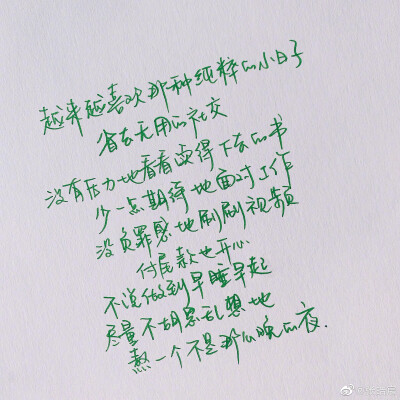 越来越喜欢那种纯粹的小日子
省去无用的社交
没有压力地看看读得下去的书
少一点期待地面对工作
没负罪感地刷刷视频
付尾款也开心
不说做到早睡早起
尽量不胡思乱想地
熬一个不是那么晚的夜.